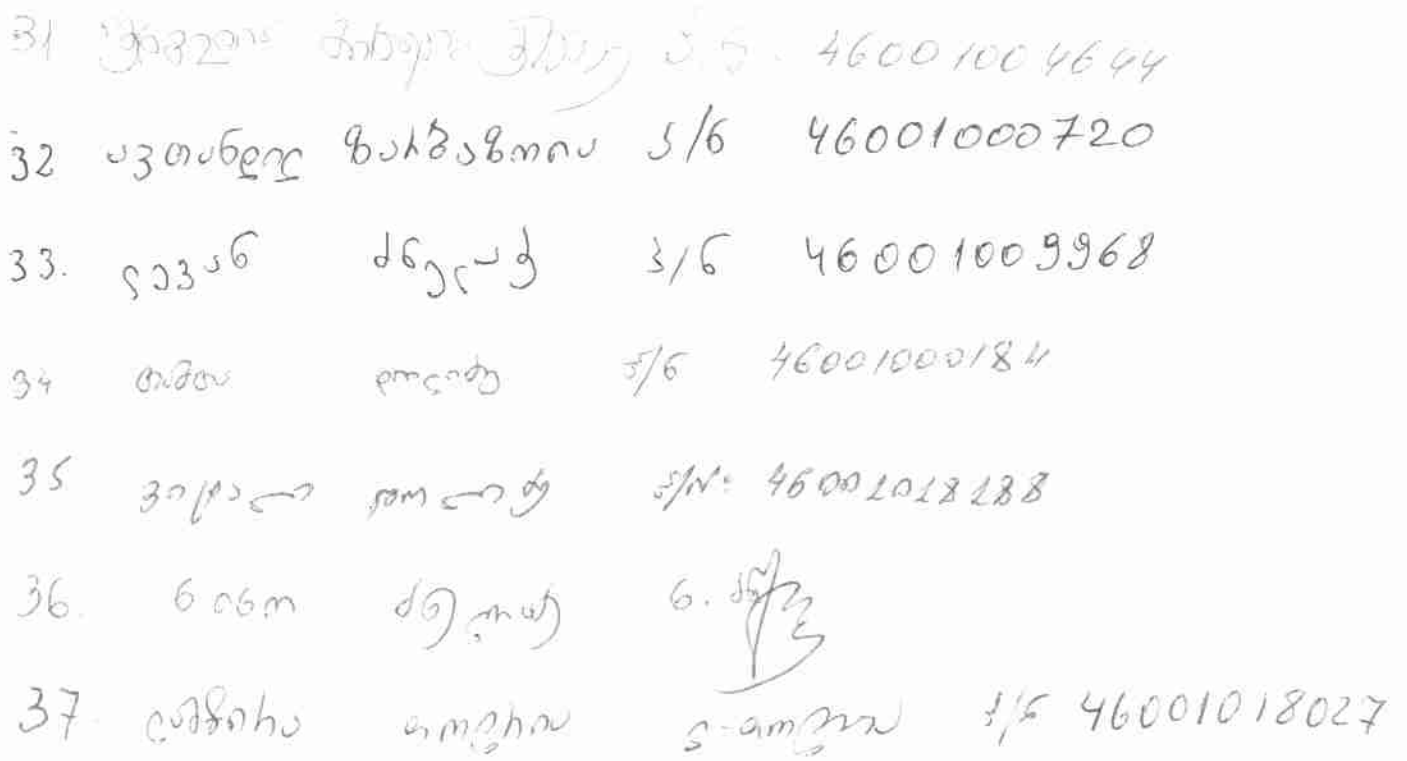 31 46001004644
32 ავთანდილ ზარბაზოია პ/ნ 46001000720
33. ლევან ძნელაძე პ/ნ 46001009968
34 თამთა დოლიძე პ/ნ 46001000184
35 ვიტალი დოლიძე პ/№: 46001018188
36. ნინო ძნელაძე ნ.
37. ლამზირა თოფრია პ/ნ 46001018027